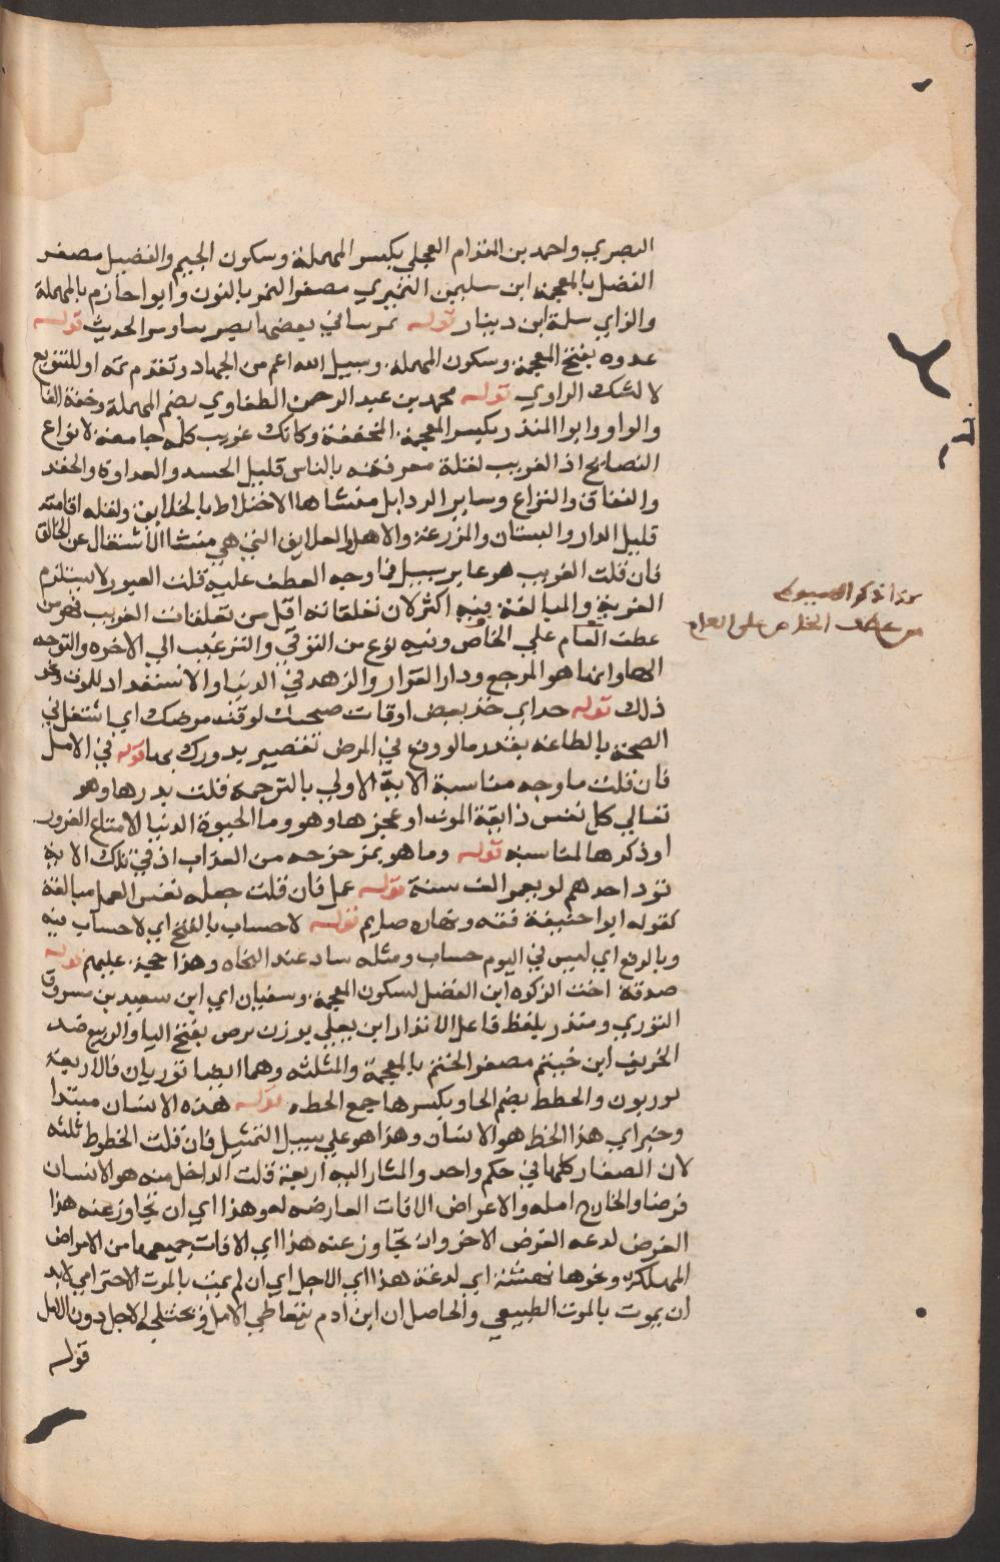 البصري واحمد بن المقدام العجلي بكسر المهملة وسكون الجيم والفضيل مصغر
الفضل بالمعجمة ابن سليمن النميري مصغر النمر بالنون وابوا حازم بالمهملة
والزاي سلمة ابن دينار قوله يمر بنا في بعضها بصر بنا ومر الحديث قوله
غدوة بفتح المعجمة وسكون المهملة وسبيل الله اعم من الجهاد وتقدم ثمه او للتنويع
لا لشك الراوي قوله محمد بن عبد الرحمن الطفاوي بضم المهملة وخفة الفا
والواو وابوا المنذر بكسر المعجمة المخففة وكانك غريب كلمه جامعة لانواع
النصايح اذ الغريب لقلة معرفته بالناس قليل الحسد والعداوة والحقد
والنفاق والنزاع وساير الردايل منشاها الاختلاط بالخلايق ولقله اقامته
قليل الدار والبستان والمزرعة والاهل والعلايق التي هي منشا الاشتغال عن الخالق
فان قلت الغريب هو عابر سبيل فما وجه العطف عليه قلت العبور لا يستلزم
الغربة والمبالغة فيه اكثر لان تعلقاته اقل من تعلقات الغريب فهو من
عطف العام علي الخاص وفيه نوع من التوقي والترغيب الي الاخره والتوجه
اليها وانها هو المرجع ودار القرار والزهد في الدنيا والاستعداد للموت ونحو
ذلك قوله خذ اي خذ بعض اوقات صحتك لوقت مرضك اي اشتغل في
الصحة بالطاعة بقدر ما لو وقع في المرض تقصير يدورك بها قوله في الامل
فان قلت ما وجه مناسبة الاية الاولي بالترجمة قلت بدرها وهو
تعالي كل نفس ذايقة الموت او عجزها وهو وما الحيوة الدنيا الا متاع الغرور
او ذكرها لمناسبة قوله وما هو بمزحزحه من العذاب اذ في تلك الاية
تود احدهم لو يعمر الف سنة قوله عمل فان قلت جعله نفس العمل مبالغة
كقوله ابوا حنيفة فقه ونهاره صايم قوله لا حساب بالفتح اي لا حساب فيه
وبالرفع اي ليس في اليوم حساب ومثله شاد عند النحاه وهذا حجة عليهم قوله
صدقة اخت الزكوه ابن الفضل لسكون المعجمة وسفيان اي ابن سعيد بن مسروق
الثوري ومنذر بلفظ فاعل الانذار ابن يعلي بوزن يرص بفتح اليا والربيع ضد
الخريف ابن خيثم مصغر الخثم بالمعجمة والمثلثه وهما ايضا ثوريان فالاربعة
ثوريون والخطط بضم الخا وبكسرها جمع الخطه قوله هذه الانسان مبتدا
وخبر اي هذا الخط هو الانسان وهذا هو علي سبيل التمثيل فان قلت الخطوط ثلثه
لان الصغار كلها في حكم واحد والمشار اليه اربعة قلت الداخل منه هو الانسان
فرضا والخارج امله والاعراض الافات العارضه له وهذا اي ان تجاوز عنه هذا
العرض لدغه العرض الاخر وان تجاوز عنه هذا اي الافات جميعها من الامراض
المهلكة ونحوها نهشته اي لدغته هذا اي الاجل اي ان لم يمت بالموت الاخترامي لابد
ان يموت بالموت الطبيعي والحاصل ان ابن ادم يتعاطي الامل ويختلجه الاجل دون الامل
قوله
من عطف الخاص على العام